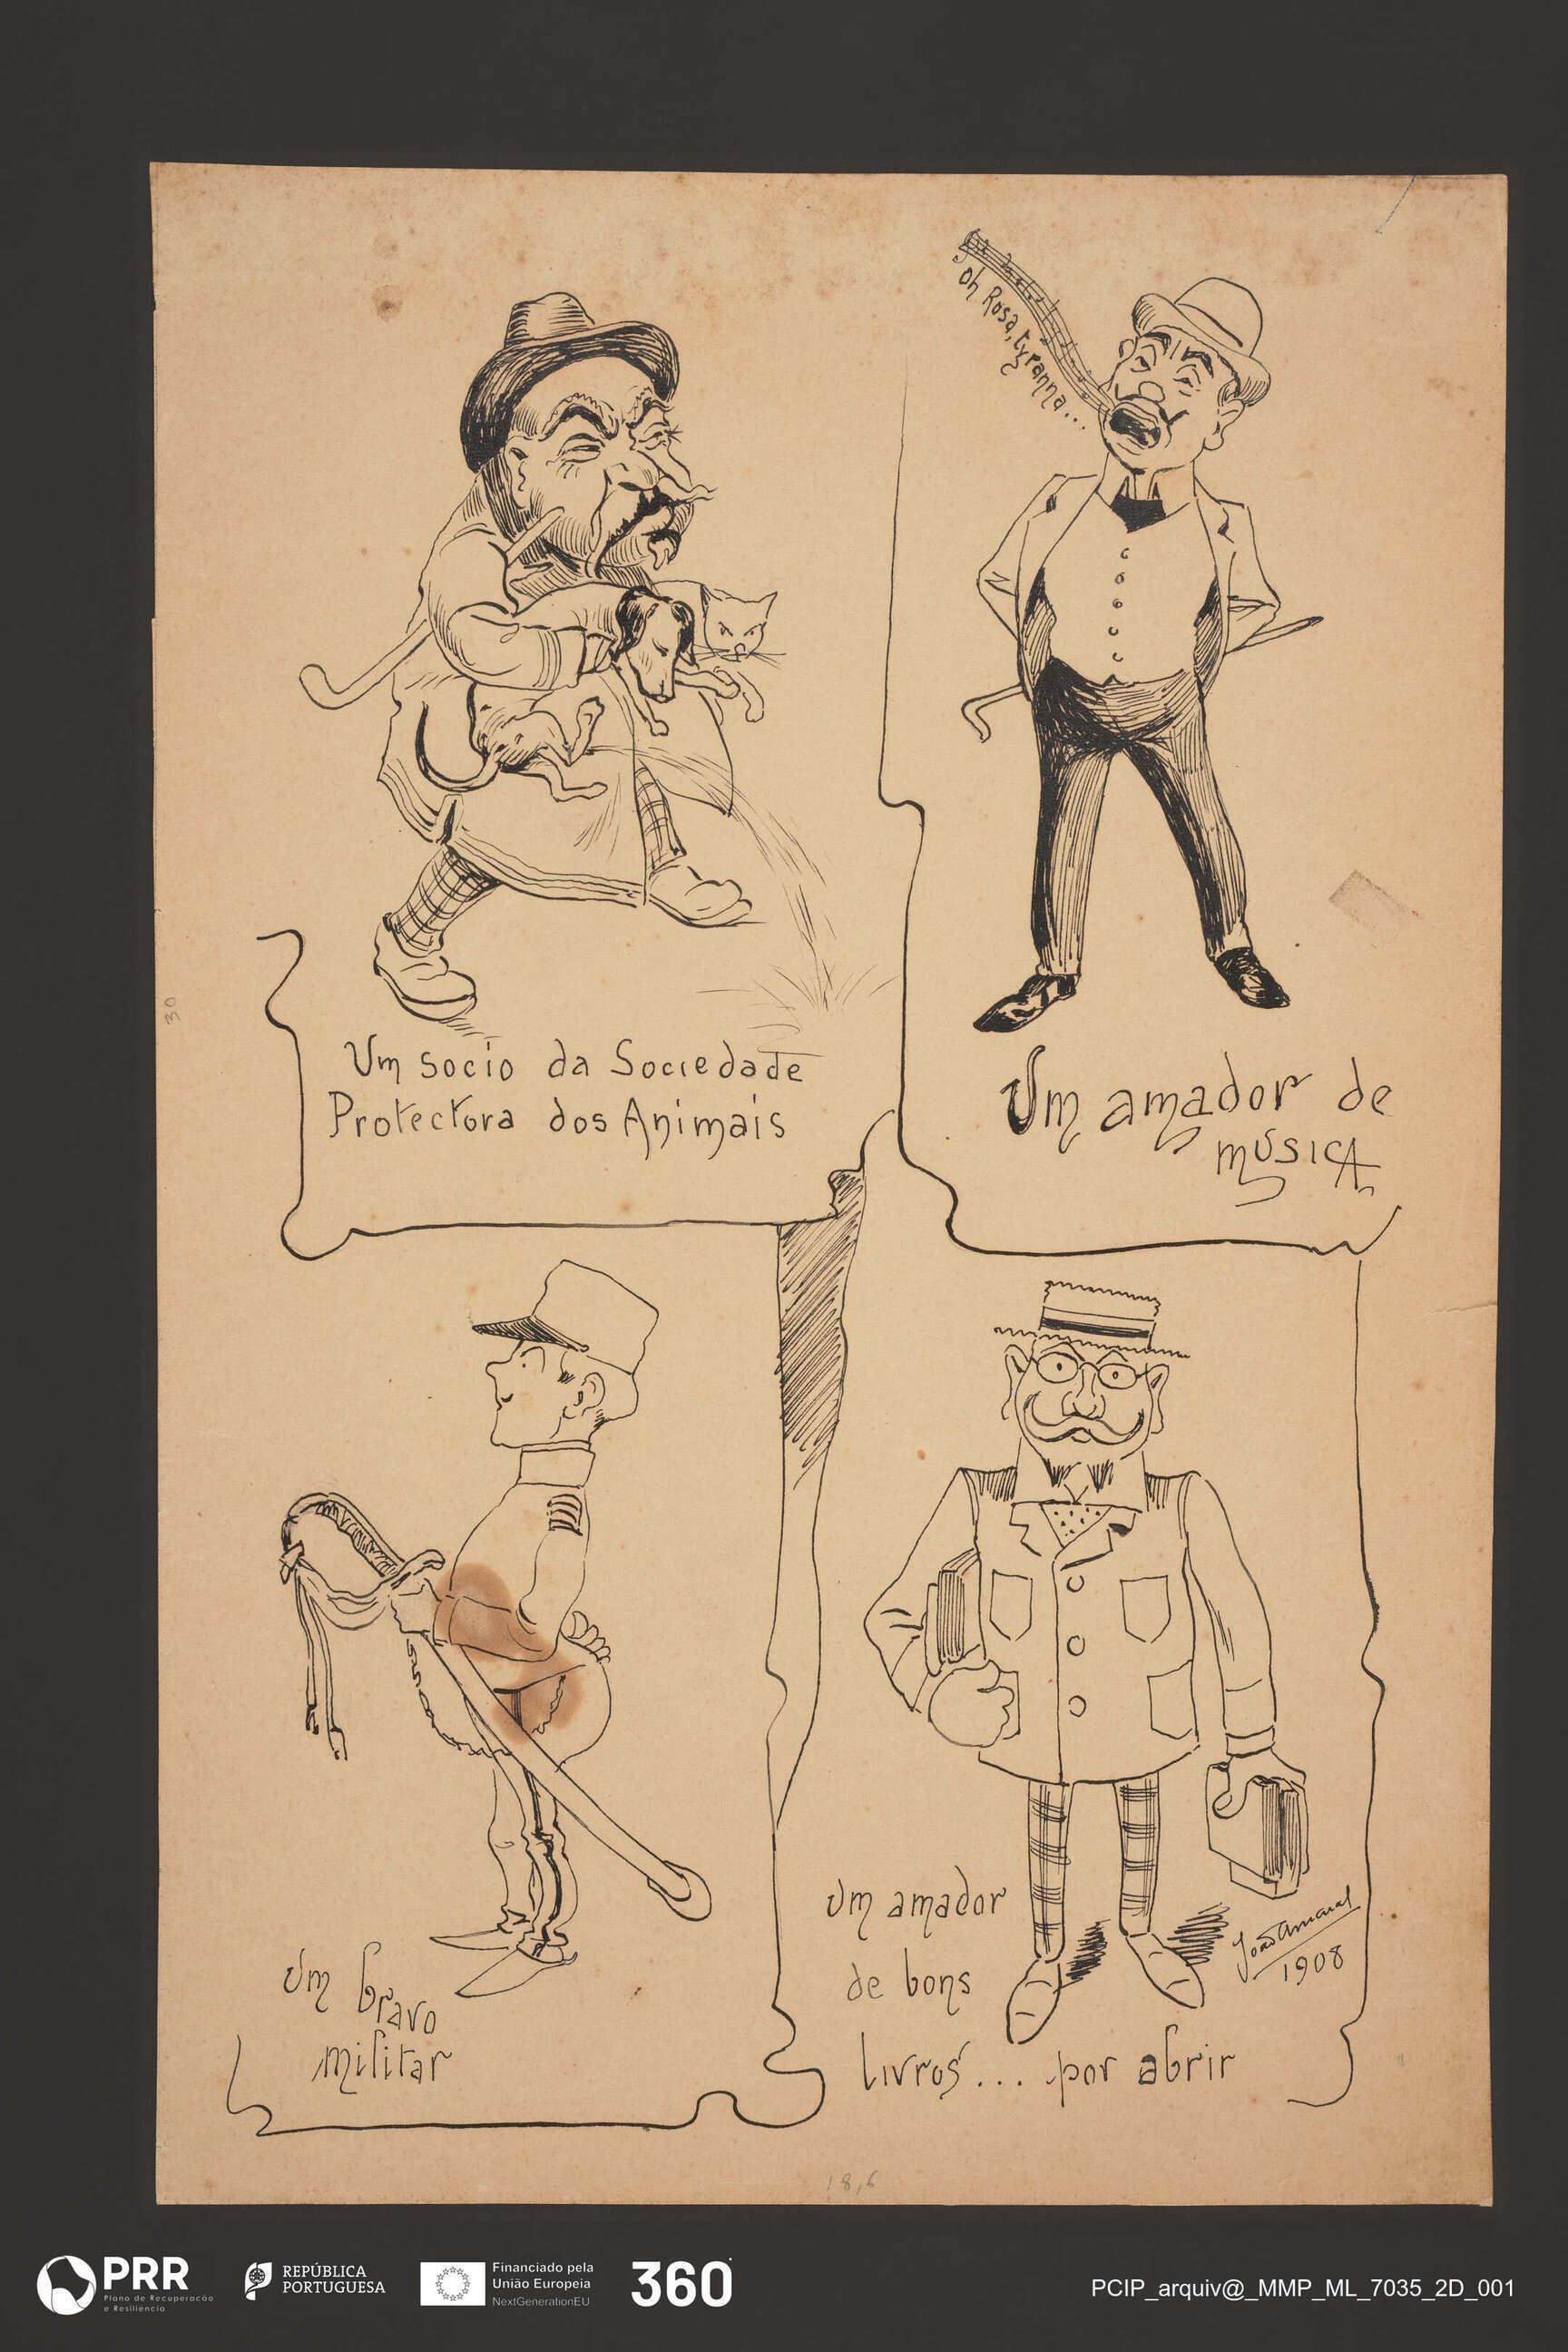 oh Rosa, tyranna...
Um socio da Sociedade
Protectora dos Animais
Um amador de
MÚSICA
30
Um bravo
militar
Um amador
de bons
livros... por abrir
João Amaral
1908
18,6
PRR
Plano de Recuperação
e Resiliência
REPÚBLICA
PORTUGUESA
Financiado pela
União Europeia
NextGenerationEU
360
PCIP_arquiv@_MMP_ML_7035_2D_001